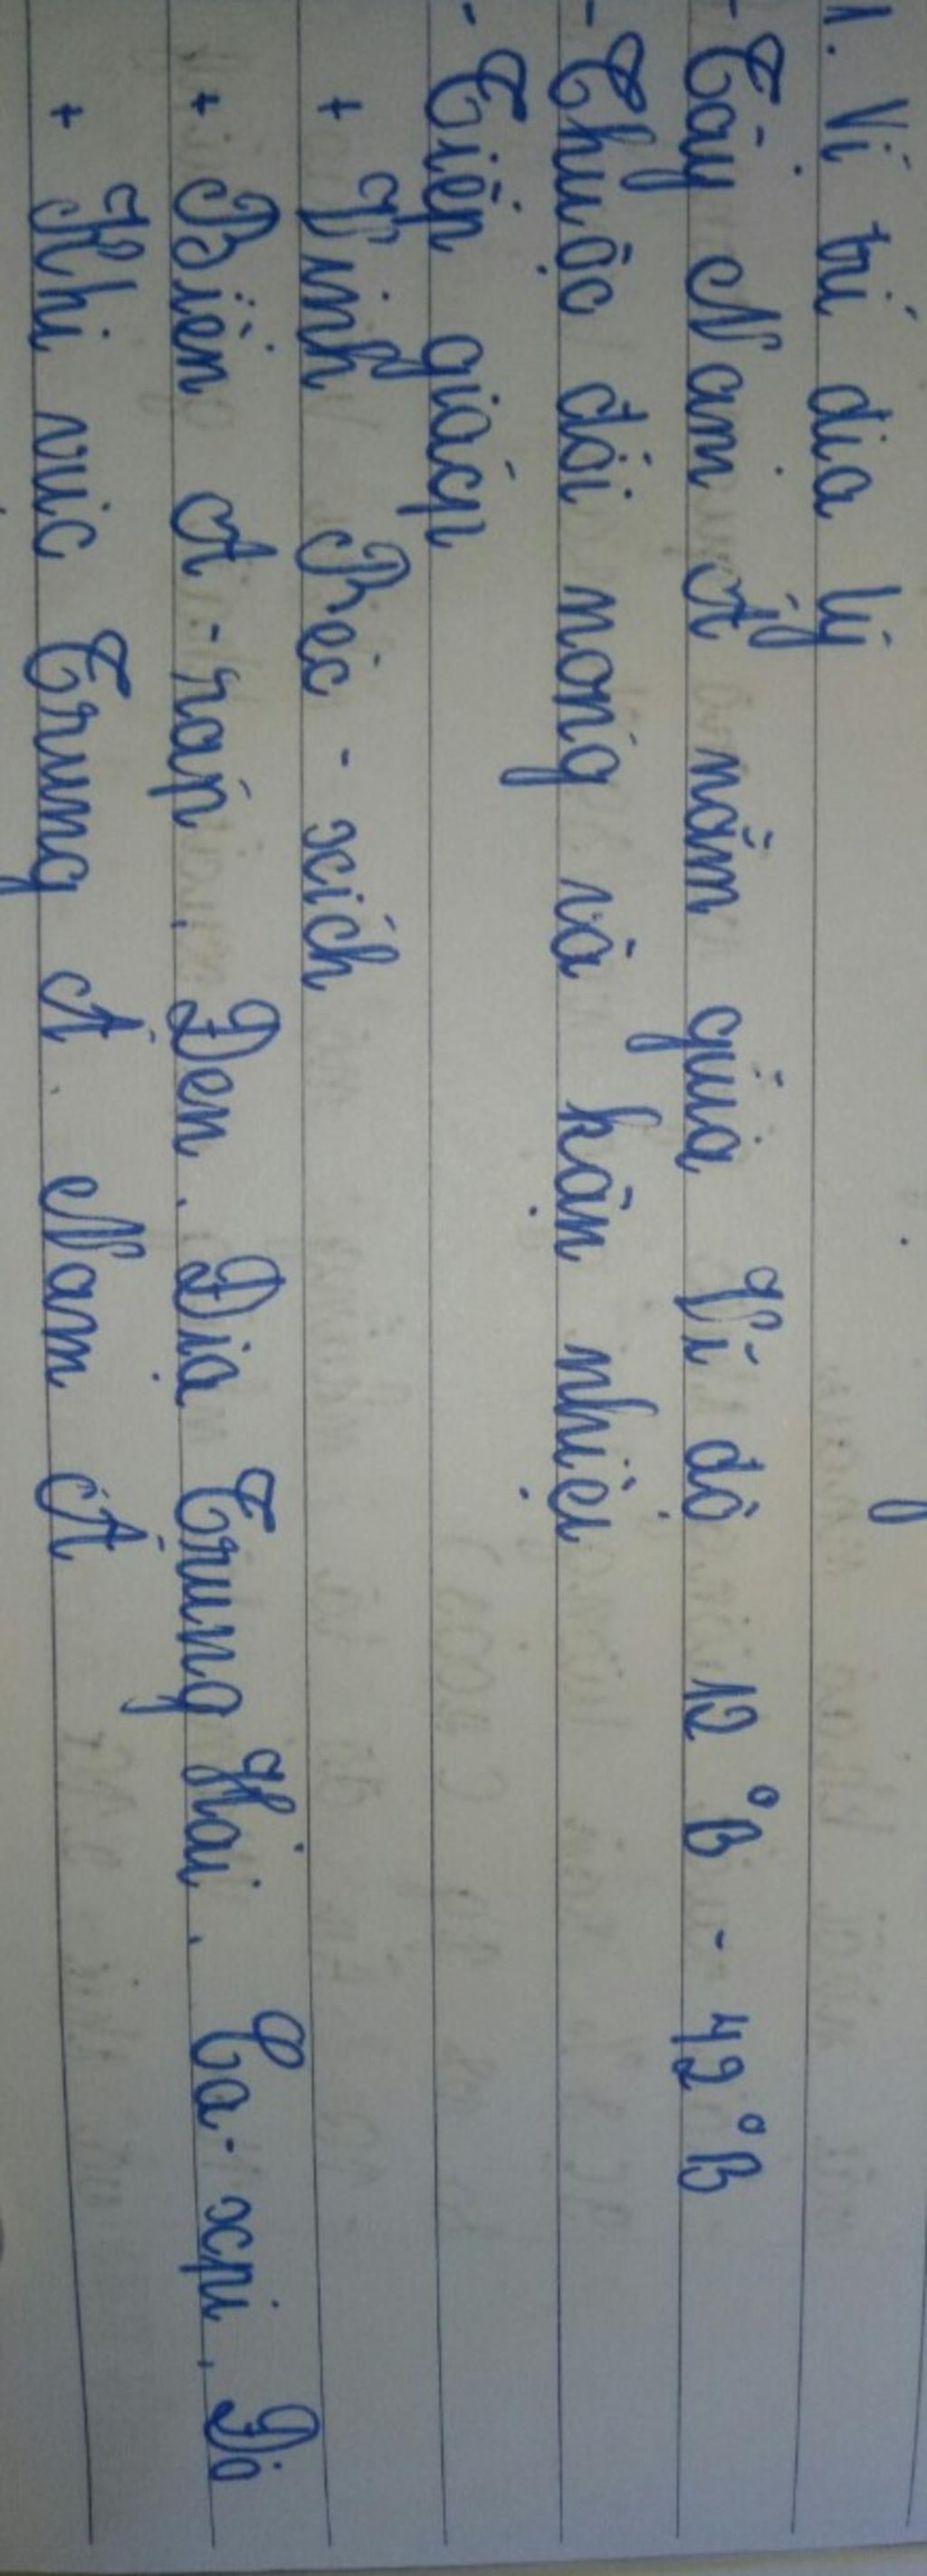 1. Vị trí địa lý
- Tây Nam Á nằm qua Vĩ độ 12°B - 42°B
- Thuộc đới nóng và kận nhiệi
- Tiếp giáp
+ Vịnh Péc - xích
+ Biển A - rap, Đen, Địa Trung Hải, Ca - xpi, Đỏ
+ Khi vưc Trung Á, Nam Á